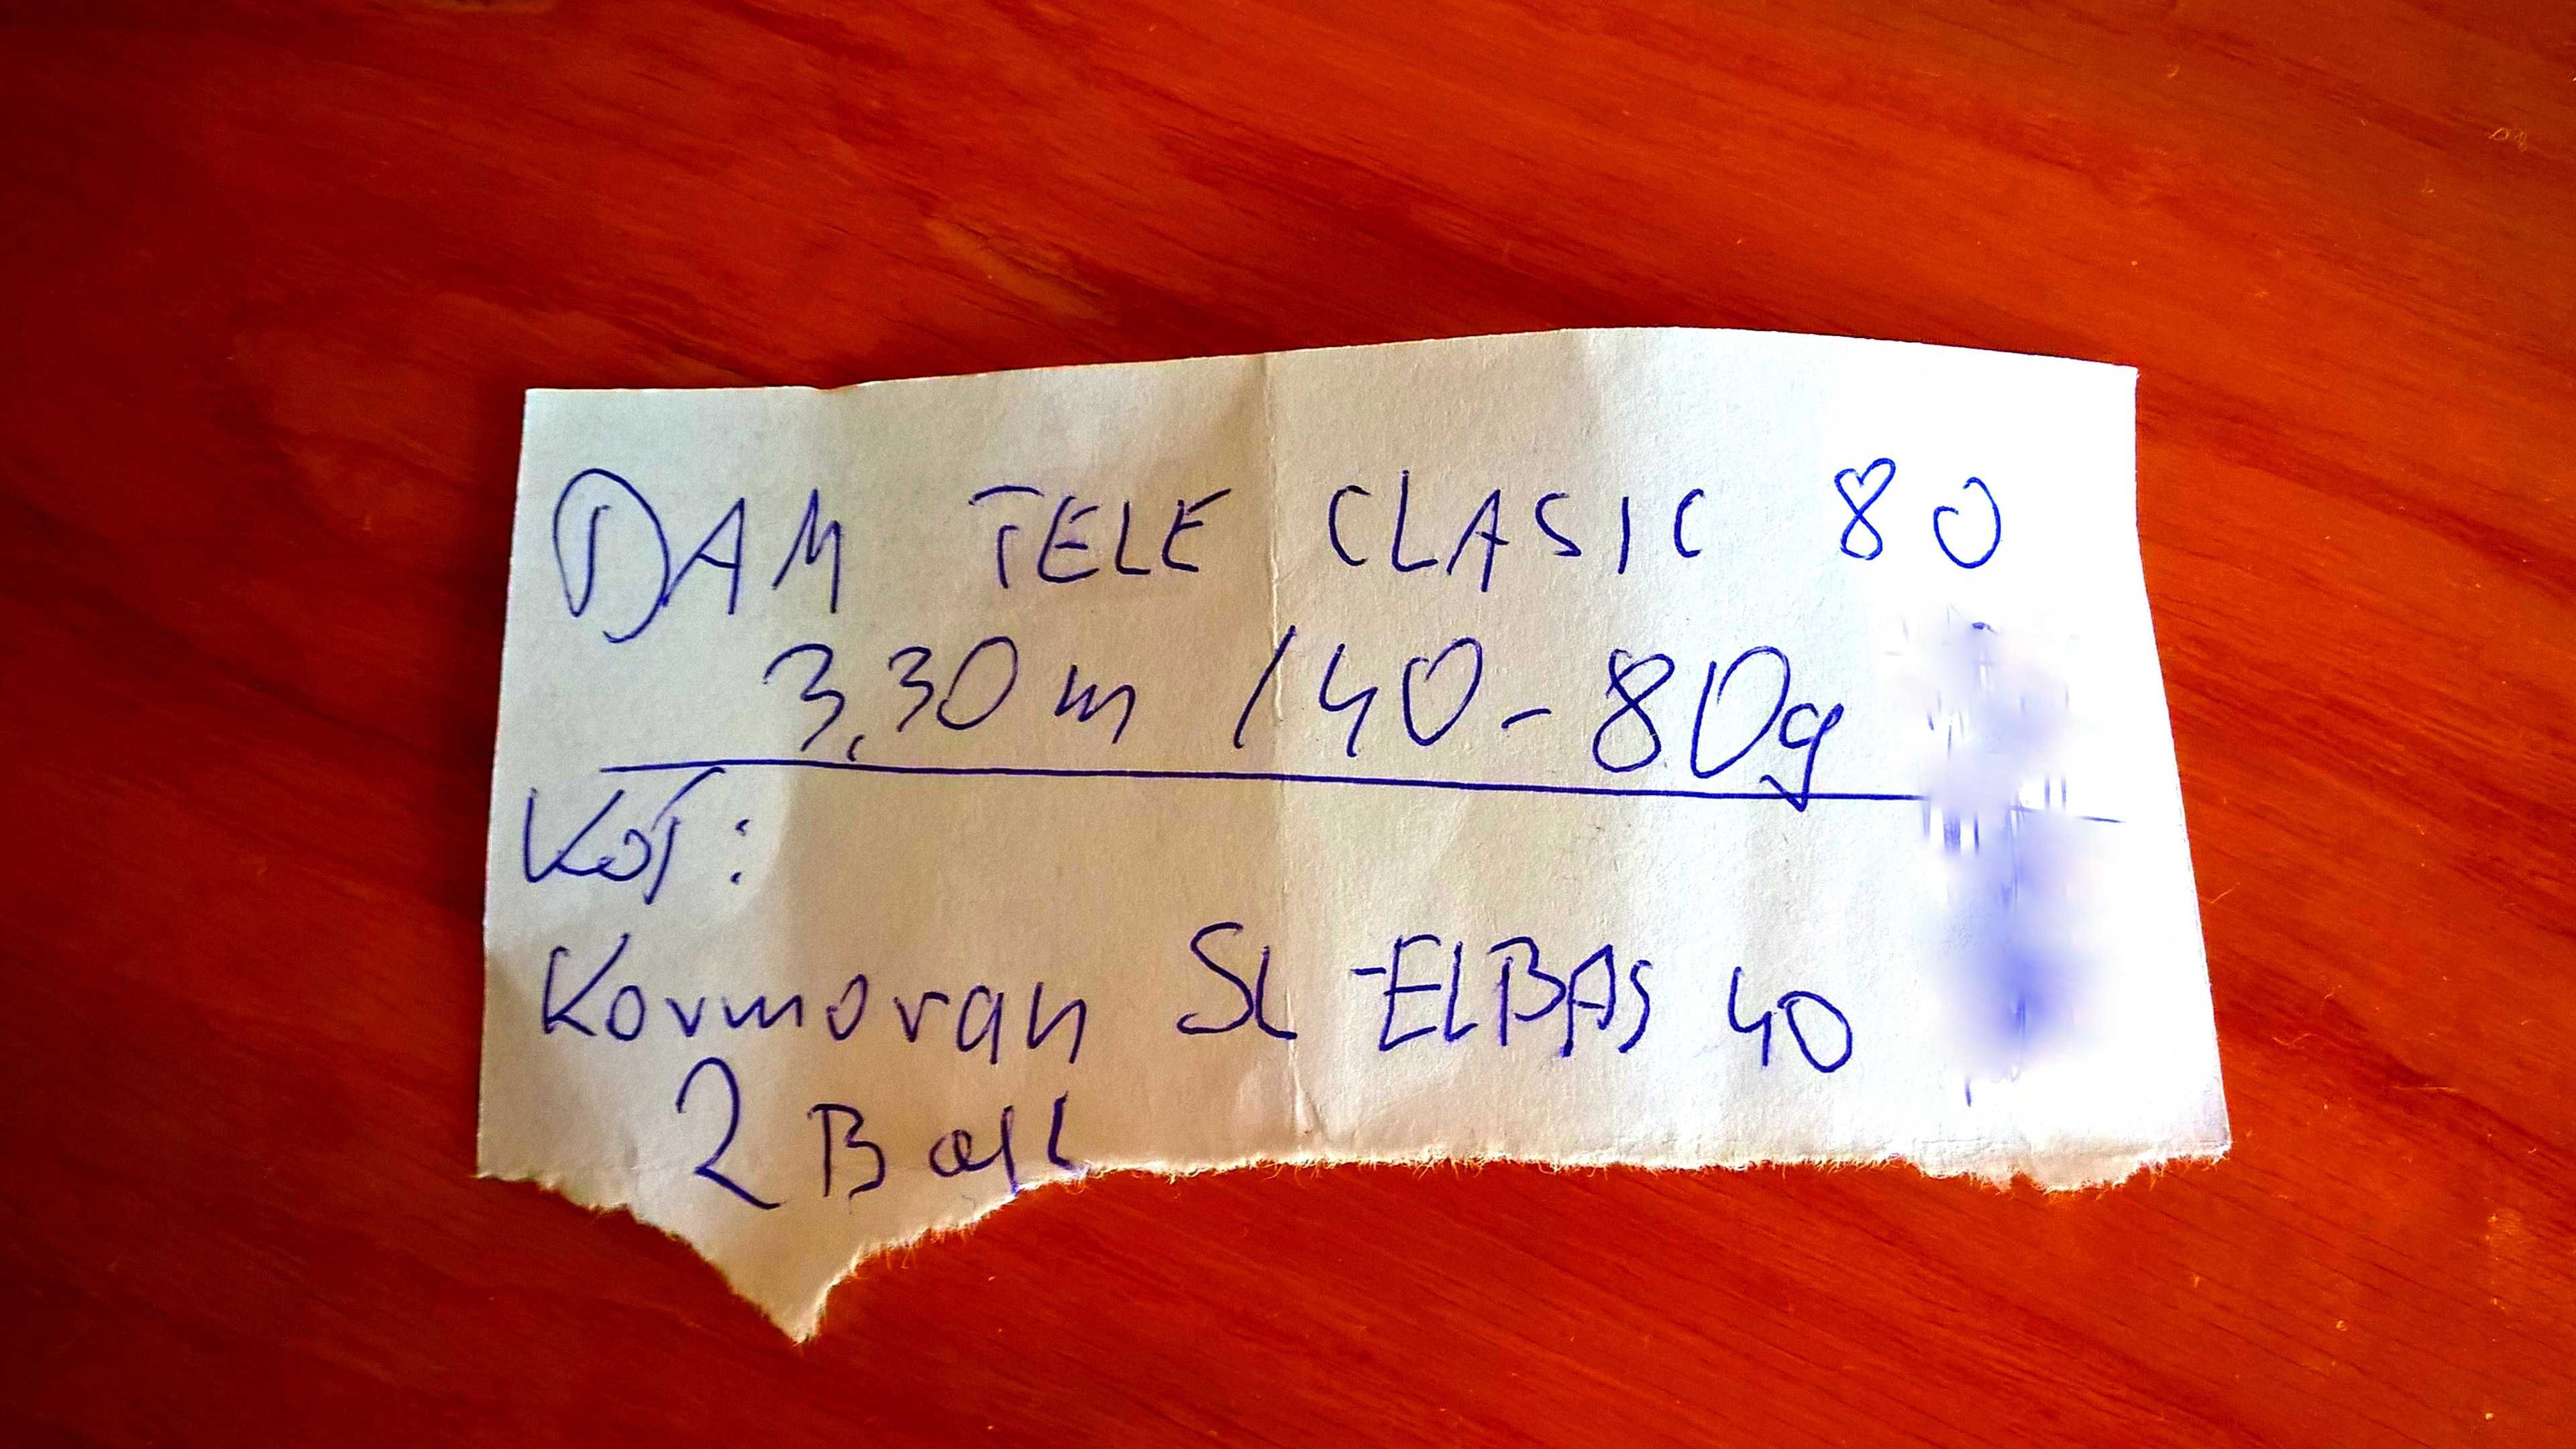 DAM TELE CLASIC 80
3,30 m / 40 - 80g
Kot:
Kormoran SL - ELBAS 40
2 Ball